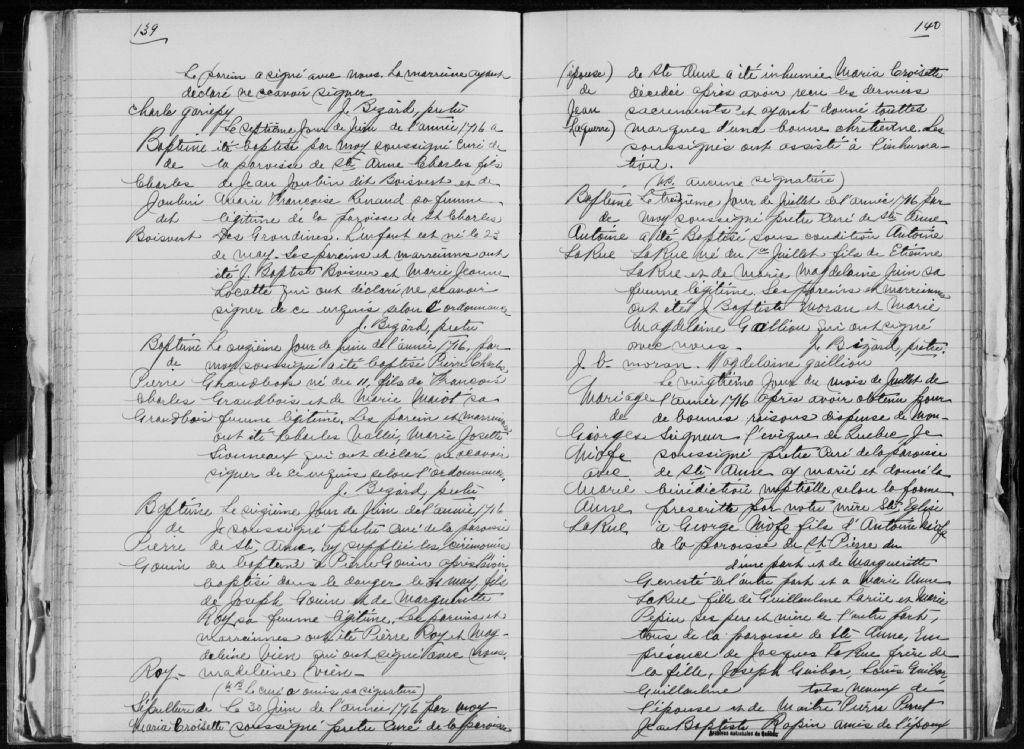 139
Le parein a signé avec nous. La marreine ayant
déclaré ne scavoir signer
Charle gariépy J. Bezard, pretre
Le septième Jour de Juin de l'année 1716 a
Baptême été baptisé par moy soussigné Curé de
de la paroisse de Ste Anne Charles fils
Charles de Jean Joubin dit Boisvert et de
Joubin Marie Françoise Renaud sa femme
dit légitime de la paroisse de St Charles
Boisvert des Grondines. L'enfant est né le 23
de may. Les pareins et marreines ont
été J. Baptiste Boisver et Marie Jeanne
qui ont déclaré ne scavoir
signer de ce enquis selon l'ordonnance
J. Bezard, pretre
Baptême Le onzième Jour de Juin de l'année 1716, par
de moy soussigné a été baptisé Pierre Charles
Pierre Grandbois né du 11, fils de François
Charles Grandbois et de Marie sa
Grandbois femme légitime. Les parein et marreine
ont été Charles Vallée, Marie Josette
qui ont déclaré ne scavoir
signer de ce enquis selon l'ordonnance
J. Bezard, pretre
Baptême Le sizième Jour de Juin de l'année 1716
de Je soussigné pretre Curé de la paroisse
Pierre de Ste Anne, ay supplée les cérémonies
Gouin du baptème à Pierre Gouin après l'avoir
baptisé dans le danger le 31 may, fils
de Joseph Gouin et de Marguerite
Roy sa femme légitime. Les pareins et
marreinnes ont été Pierre Roy et Mag-
deleine Vien qui ont signé avec nous.
Roy - madeleine vien -
(NB Le curé a omis sa signature)
Sépulture de Le 30 Juin de l'année 1716 par moy
Maria Croisette soussigné pretre Curé de la paroisse
140
(épouse) de Ste Anne a été inhumée Maria Croisette
de décédée après avoir reçu les derniers
Jean sacrements et ayant donné touttes
Laguerre) marques d'une bonne chretienne. Les
soussignés ont assisté à l'inhuma-
tion.
(NB. aucune signature)
Baptême Le treizième Jour de Juillet de l'année 1716 par
de moy soussigné pretre Curé de Ste Anne
Antoine a été Baptisé sous condition Antoine
LaRue LaRue né du 1er Juillet fils de Etienne
LaRue et de Marie Magdelaine Juin sa
femme légitime. Les pareins et marreinne
ont été J Baptiste Moran et Marie
Magdeleine Gaillion qui ont signé
avec nous. J. Bizard, pretre.
J. b- moran. Magdelaine gaillion
Le vingtième Jour du mois de Juillet de
Mariage l'année 1716 après avoir obtenu pour
de de bonnes raisons dispense de Mon-
Georges Seigneur l'évêque de Quebec, Je
soussigné pretre Curé de la paroisse
avec de Ste Anne ay marié et donné la
Marie bénédiction nuptialle selon la forme
Anne prescritte par notre mère Ste Eglise
LaRue à George fils d'Antoine
de la paroisse de St Pierre du
d'une part et de Marguerite
Genesté de l'autre part et a Marie Anne
LaRue fille de Guillaulme Larue et Marie
Pepin ses pere et mère de l'autre part,
tous de la paroisse de Ste Anne, En
présence de Jacques LaRue frère de
la fille, Joseph Guibor, Louis Guibor,
Guillaulme tous neveux de
l'épouse et de Maître Pierre Perrot
Jean Baptiste Rapin amis de l'époux
Archives nationales du Québec